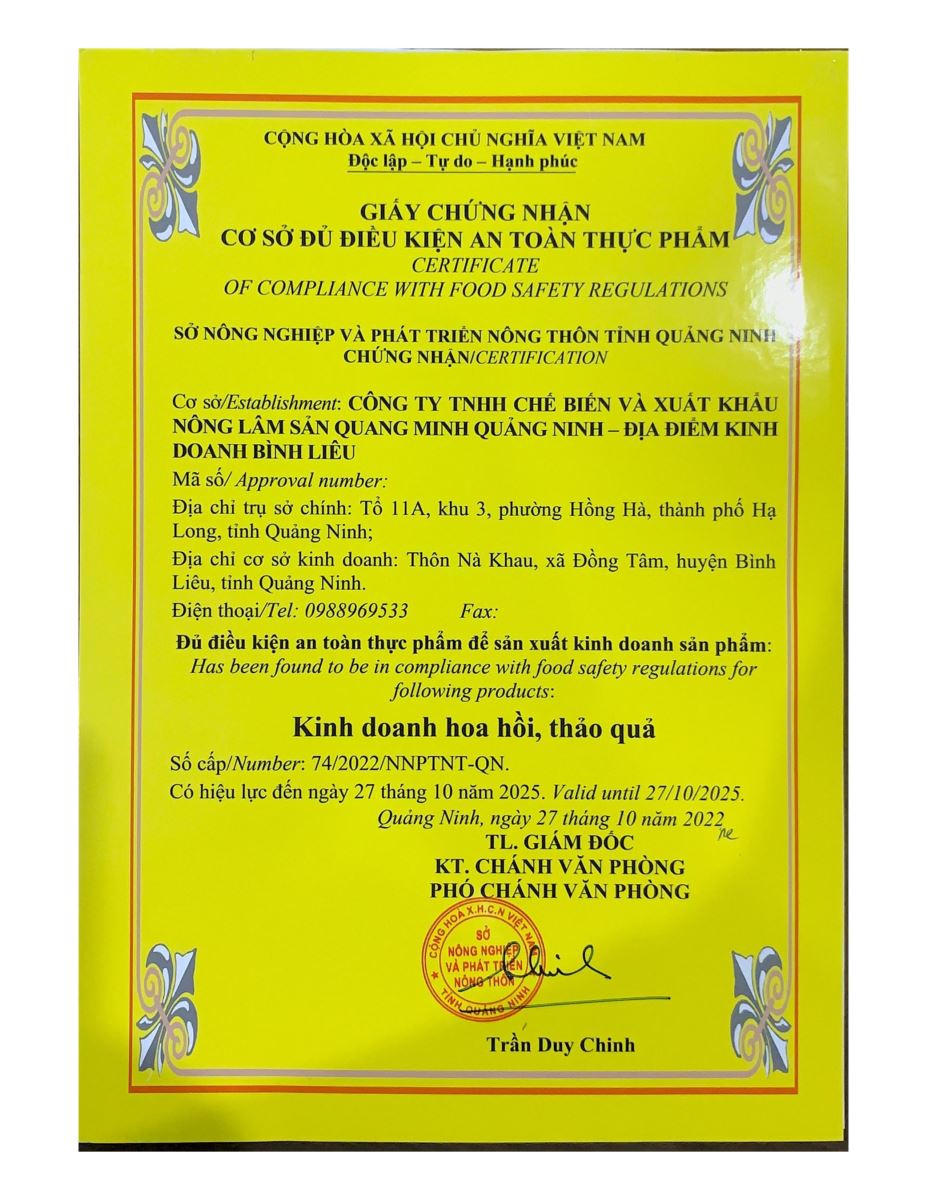 CỘNG HÒA XÃ HỘI CHỦ NGHĨA VIỆT NAM
Độc lập – Tự do – Hạnh phúc
GIẤY CHỨNG NHẬN
CƠ SỞ ĐỦ ĐIỀU KIỆN AN TOÀN THỰC PHẨM
CERTIFICATE
OF COMPLIANCE WITH FOOD SAFETY REGULATIONS
SỞ NÔNG NGHIỆP VÀ PHÁT TRIỂN NÔNG THÔN TỈNH QUẢNG NINH
CHỨNG NHẬN/CERTIFICATION
Cơ sở/Establishment: CÔNG TY TNHH CHẾ BIẾN VÀ XUẤT KHẨU
NÔNG LÂM SẢN QUANG MINH QUẢNG NINH – ĐỊA ĐIỂM KINH
DOANH BÌNH LIÊU
Mã số/ Approval number:
Địa chỉ trụ sở chính: Tổ 11A, khu 3, phường Hồng Hà, thành phố Hạ
Long, tỉnh Quảng Ninh;
Địa chỉ cơ sở kinh doanh: Thôn Nà Khau, xã Đồng Tâm, huyện Bình
Liêu, tỉnh Quảng Ninh.
Điện thoại/Tel: 0988969533 Fax:
Đủ điều kiện an toàn thực phẩm để sản xuất kinh doanh sản phẩm:
Has been found to be in compliance with food safety regulations for
following products:
Kinh doanh hoa hồi, thảo quả
Số cấp/Number: 74/2022/NNPTNT-QN.
Có hiệu lực đến ngày 27 tháng 10 năm 2025. Valid until 27/10/2025.
Quảng Ninh, ngày 27 tháng 10 năm 2022
TL. GIÁM ĐỐC
KT. CHÁNH VĂN PHÒNG
PHÓ CHÁNH VĂN PHÒNG
CỘNG HOÀ X.H.C.N VIỆT NAM
SỞ
NÔNG NGHIỆP
VÀ PHÁT TRIỂN
NÔNG THÔN
TỈNH QUẢNG NINH
Trần Duy Chinh